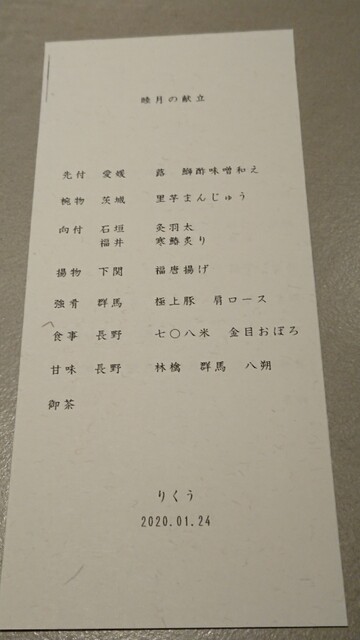 睦月の献立
先付 愛媛 蕗 鰤酢味噌和え
椀物 茨城 里芋まんじゅう
向付 石垣 灸羽太
福井 寒鰆炙り
揚物 下関 福唐揚げ
強肴 群馬 極上豚 肩ロース
食事 長野 七〇八米 金目おぼろ
甘味 長野 林檎 群馬 八朔
御茶
りくう
2020.01.24